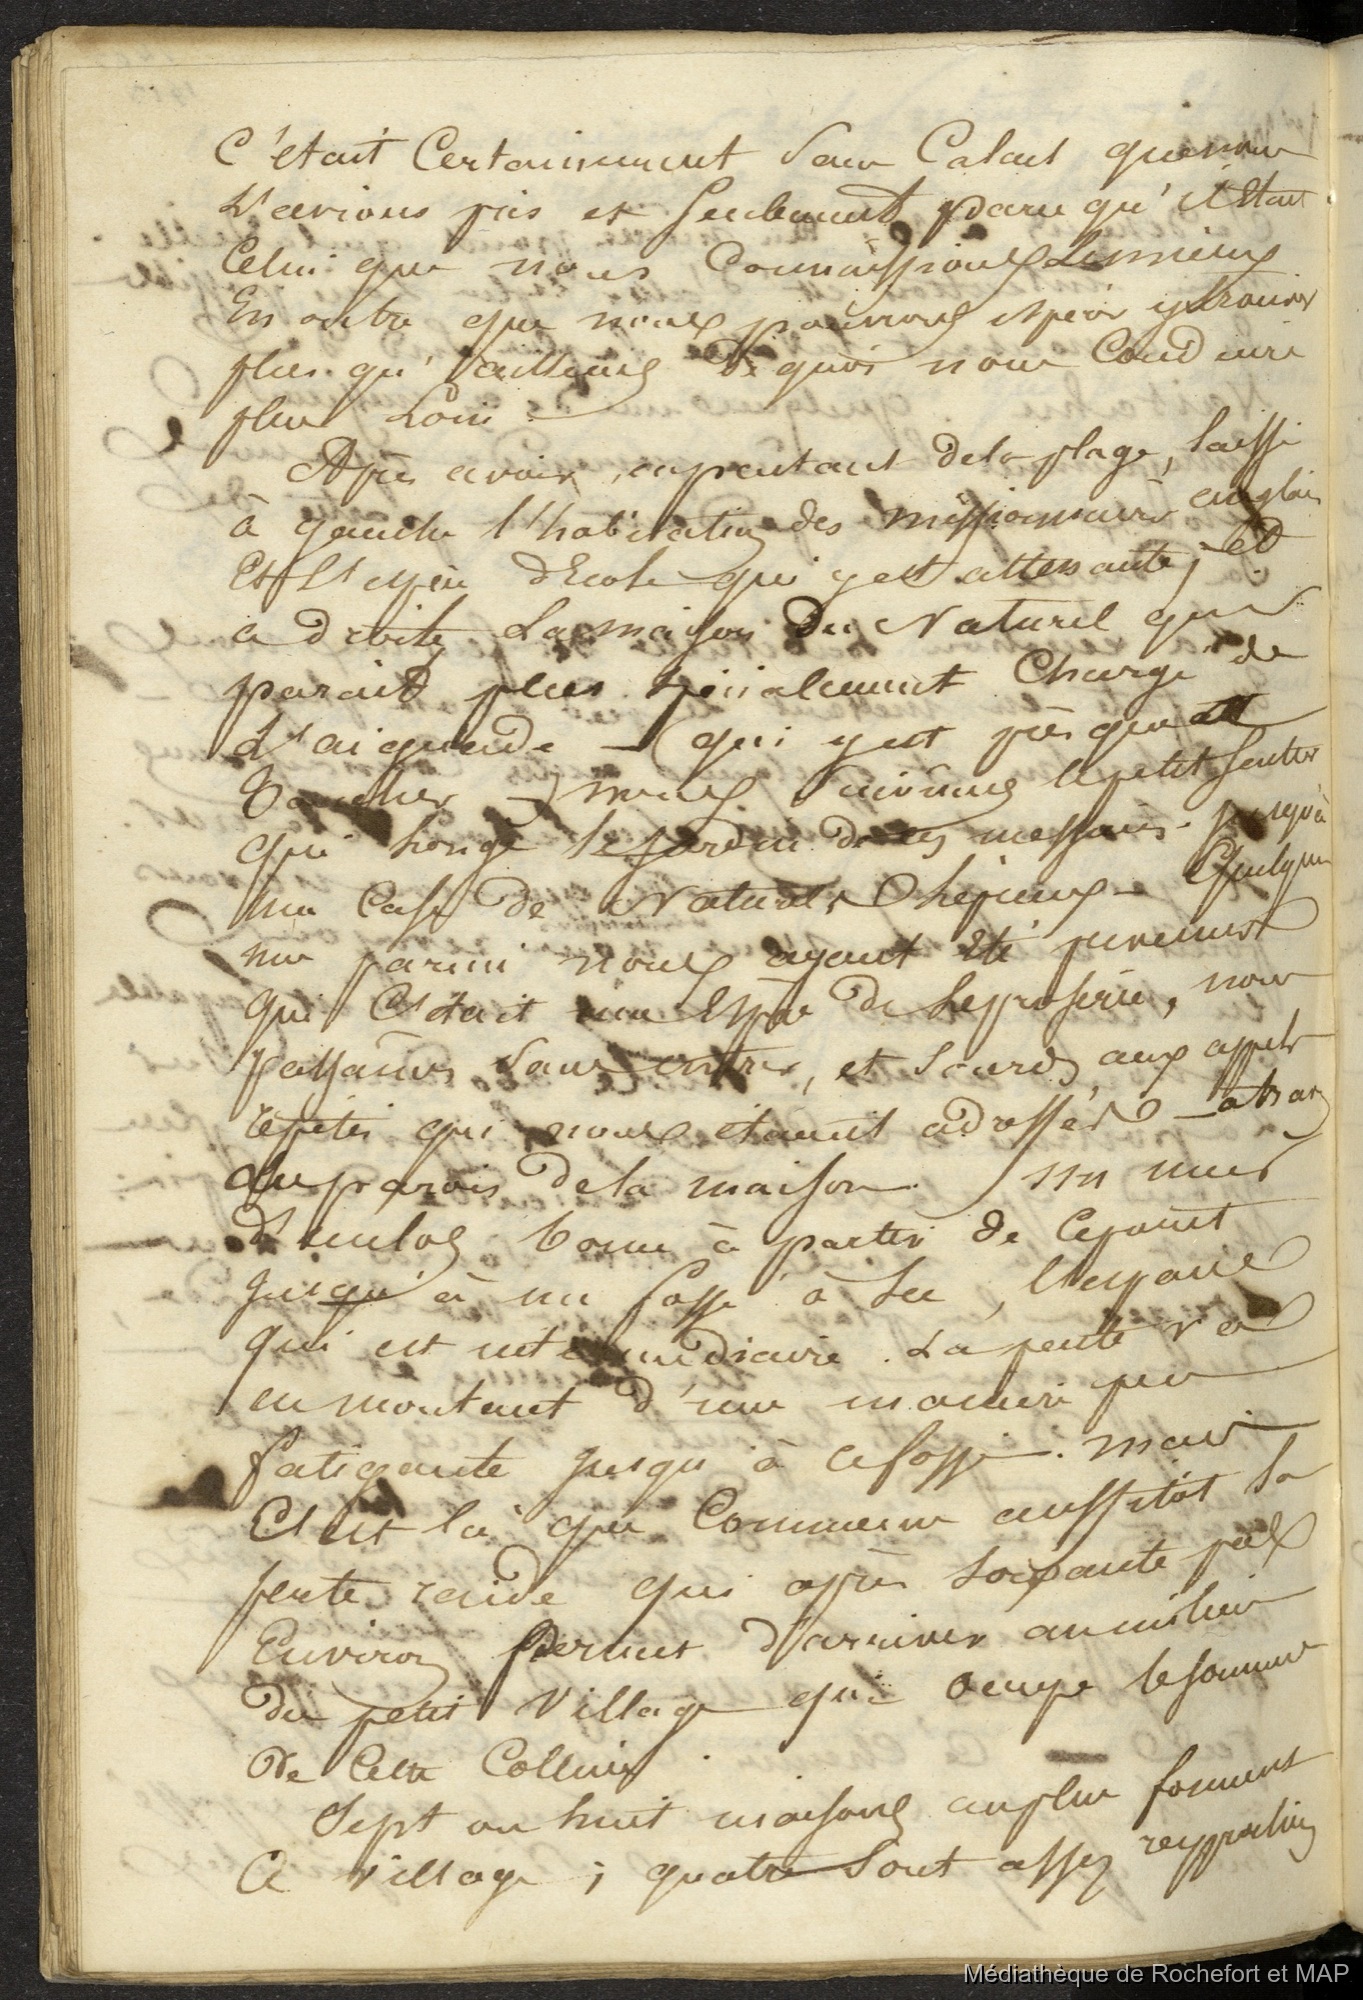 C'était Certainement sans Calcul que nous
L'avions pris et Seulement parce qu'il Etait
Celui que nous Connaissions Le mieux
En outre que nous pouvions espérer y trouver
plus qu'ailleurs de quoi nous Conduire
plus Loin.
Après avoir, en partant de la plage, laissé
à gauche l'habitation des missionnaires anglais
Et L'espèce d'Ecole qui y est attenante; et
a droite La maison du Naturel qui
parait plus spécialement Chargé de
L'aiguade — (qui y est presque
) nous suivîmes le petit sentier
qui longe le jardin de ces messieurs jusqu'à
une Case de Naturels Lépreux — Quelques
uns parmi nous ayant Eté prévenus
que C'était une Espèce de Léproserie, nous
passâmes sans entrer, et sourds aux appels
répétés qui nous étaient adressés — à travers
les parois de la maison. un mur
D'enclos borne à partir de Ce point
jusqu'à un fossé à sec, l'espace
qui est intermédiaire. La pente va
en montant d'une manière peu
fatigante jusqu'à ce fossé. mais
C'est là que Commence aussitôt la
pente raide qui après soixante pas
Environ permet d'arriver au milieu
du petit Village qui occupe le sommet
de Cette Colline.
Sept ou huit maisons au plus forment
Ce village; quatre sont assez rapprochées
Médiathèque de Rochefort et MAP